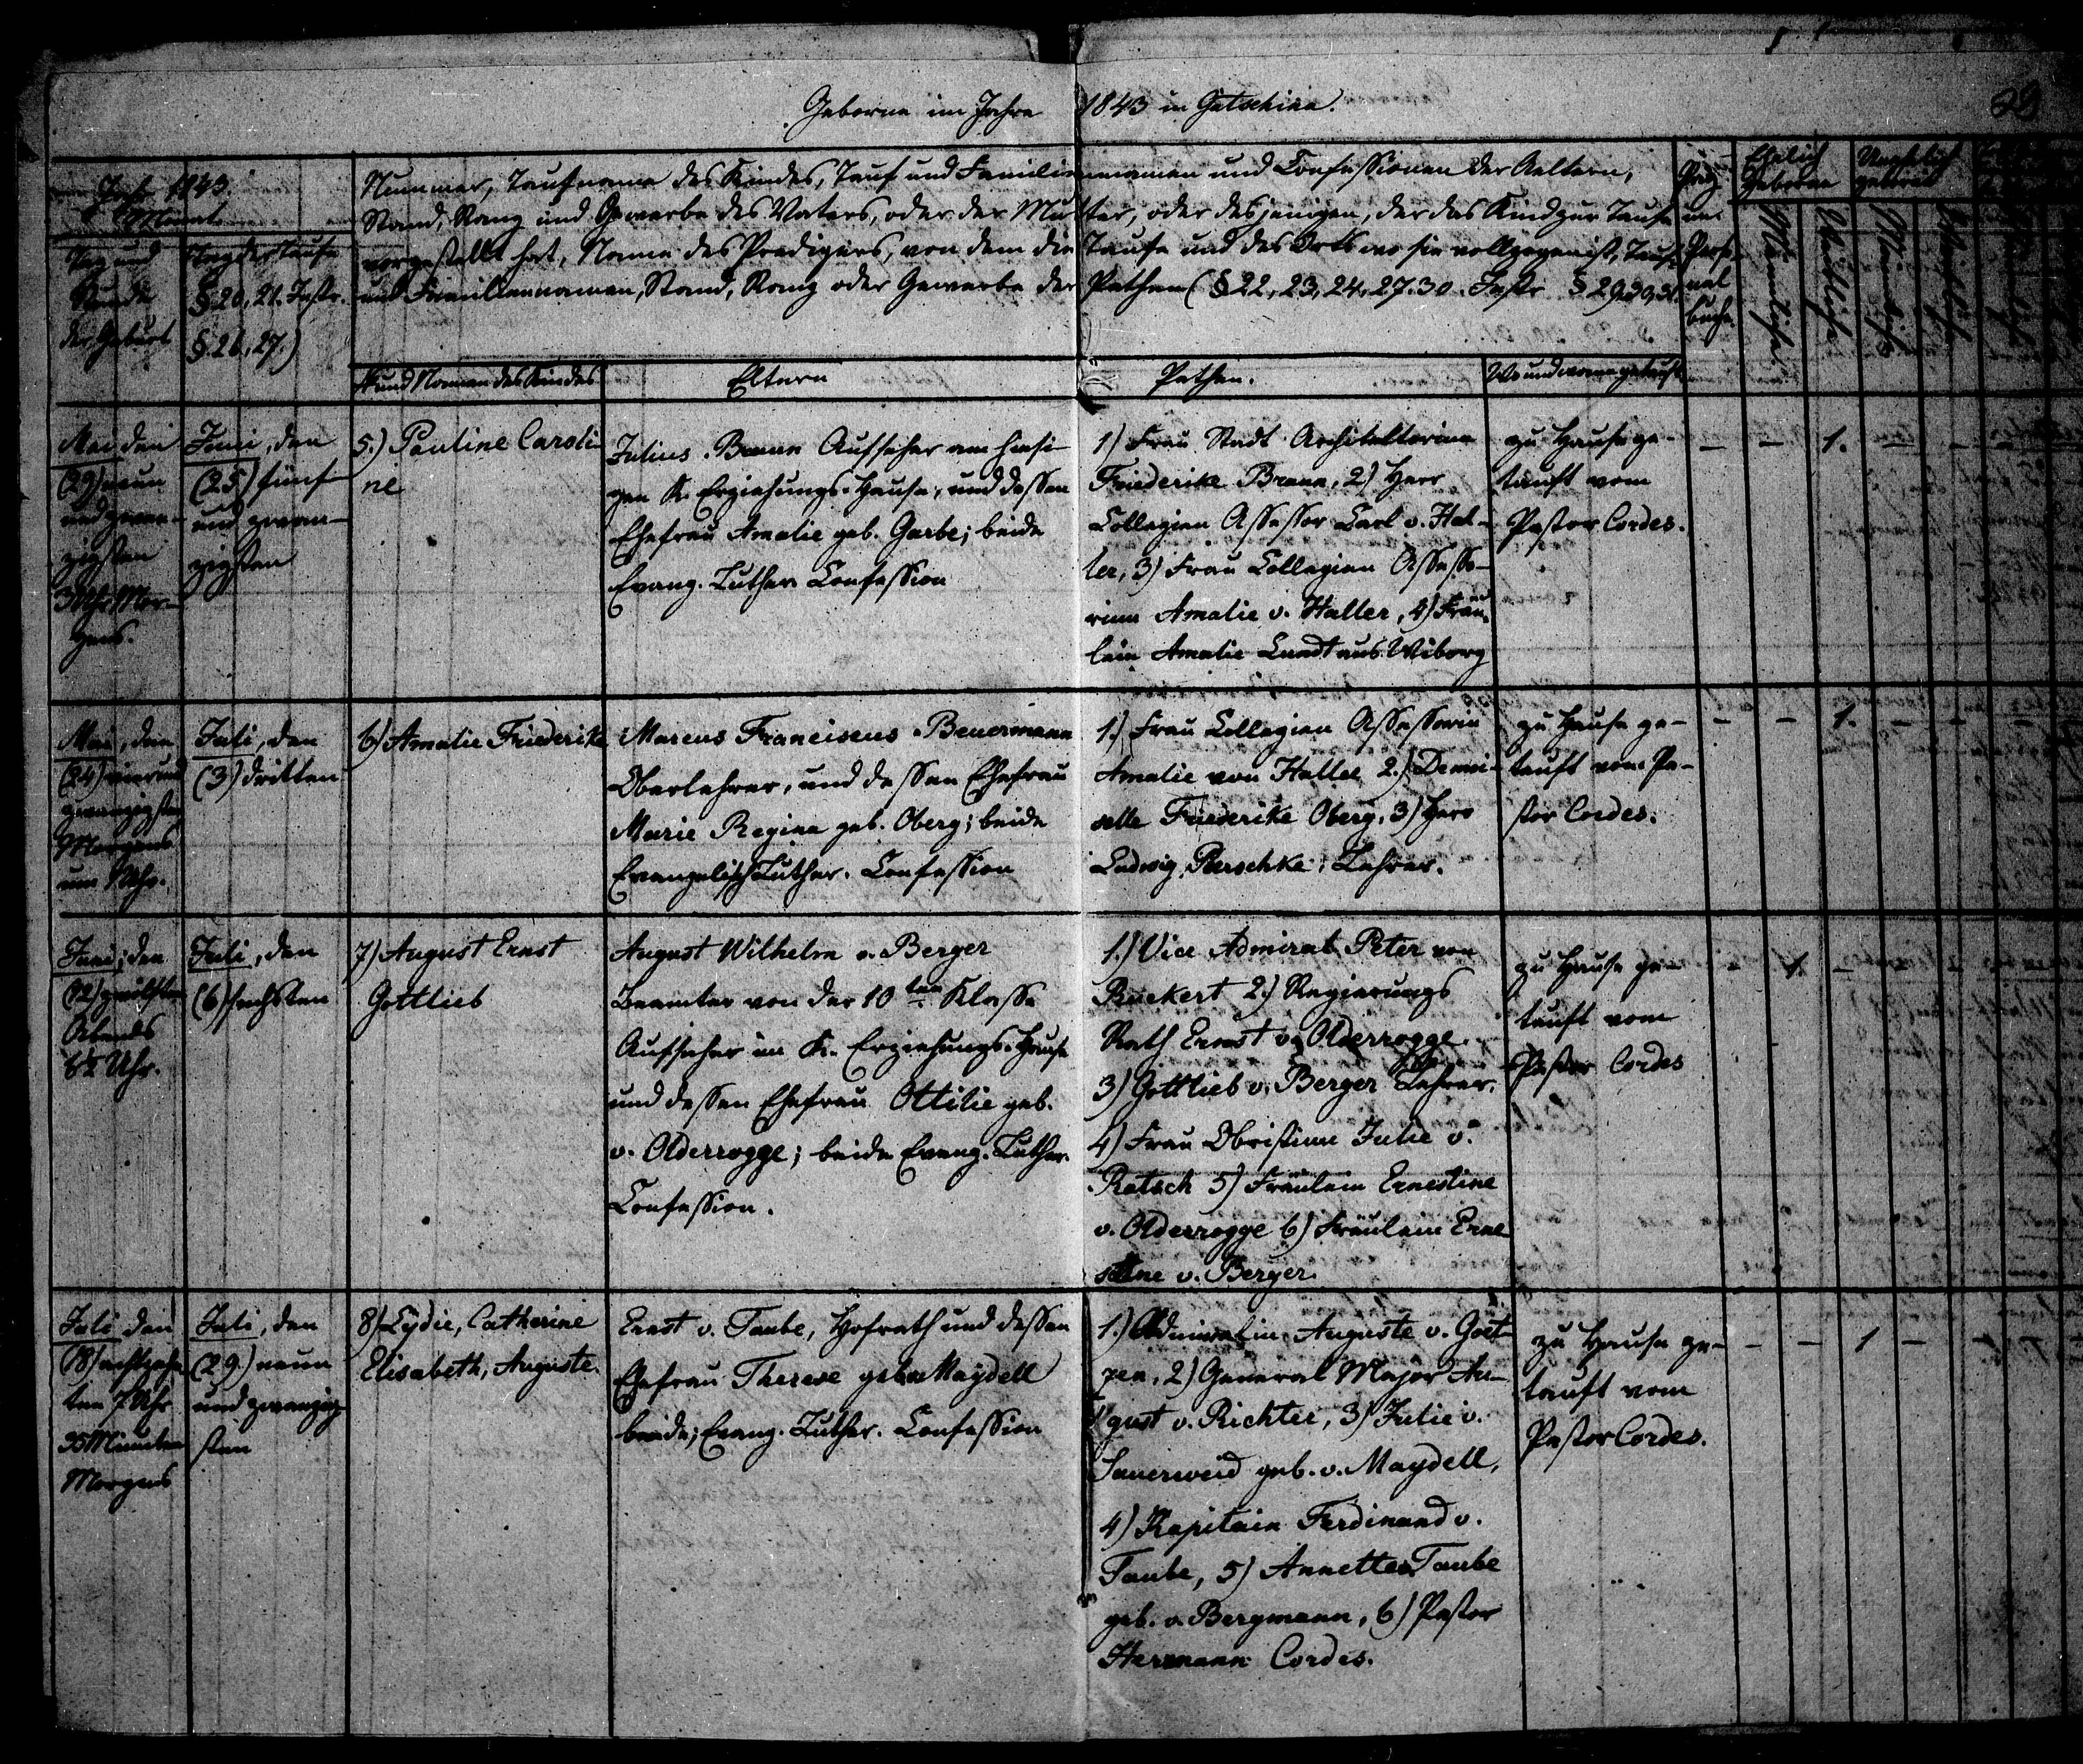 Geborne im Jahre 1843 in Gatschina.
Jahr 1843.
Monat
Tag und
Stunde
der Geburt
Tag der Taufe
§ 20, 21. Instr.
§ 26, 27.)
Nummer, Taufname des Kindes, Tauf und Familiennamen und Confessionen der Aeltern,
Stand, Rang und Gewerbe des Vaters, oder der Mutter, oder desjenigen, der das Kind zur Taufe
vorgestellt hat, Name des Predigers, von dem die Taufe und des Orts wo sie vollzogen ist, Tauf
und Familiennamen, Stand, Rang oder Gewerbe der Pathen (§ 22, 23, 24, 27. 30. Instr § 29, 30, 31.
Perso-
nal
buch.
Ehelich
geboren
Unehelich
geboren
Männliche
Weibliche
Männliche
Weibliche
№ und Namen des Kindes
Eltern
Pathen.
Wo und wann getauft
Mai den
(29) neun
und zwan-
zigsten
3 Uhr Mor-
gens.
Juni, den
(25) fünf
und zwan-
zigsten
5.) Pauline Caroli
ne
Julius Braun Aufseher am hiesi-
gen K. Erziehungs-Hause, und dessen
Ehefrau Amalie geb. Garbe; beide
Evang. Luther. Confession
1) Frau Stadt Architektorinn
Friederike Braun, 2) Herr
Collegien Assessor Carl v. Hal-
ler, 3) Frau Collegien Assesso-
rinn Amalie v. Haller, 4) Fräu-
lein Amalie Lundt aus Wiborg
zu Hause ge-
tauft vom
Pastor Cordes.
– – 1. – –
Mai, den
(24) vierund
zwanzigsten
Morgens
um 1 Uhr.
Juli, den
(3) dritten
6) Amalie Friederike
Marcus Franciscus Beuermann
Oberlehrer, und dessen Ehefrau
Marie Regina geb. Oberg; beide
Evangelisch Luther. Confession
1.) Frau Collegien Assessorin
Amalie von Haller 2.) Demoi-
selle Friederike Oberg, 3) Herr
Ludwig Perschke, Lehrer.
zu Hause ge-
tauft vom Pa-
stor Cordes.
– – 1. – – –
Juni, den
(12) zwölften
Abends
Uhr.
Juli, den
(6) sechsten
7) August Ernst
Gottlieb
August Wilhelm v. Berger
Beamter von der 10ten Klasse
Aufseher im K. Erziehungs-Hause
und dessen Ehefrau Ottilie geb.
v. Olderrogge; beide Evang. Luther.
Confession.
1.) Vice Admiral Peter von
Ruckert 2.) Regierungs
Rath Ernst v. Olderrogge
3) Gottlieb v. Berger Lehrer.
4) Frau Obristinn Julie v.
Ratsch 5) Fräulein Ernestine
v. Olderrogge 6) Fräulein Erne
stine v. Berger.
zu Hause ge-
tauft vom
Pastor Cordes
– 1. – – –
Juli den
(18) achtzehn
ten 7 Uhr
35 Minuten
Morgens
Juli, den
(29.) neun
und zwanzig-
sten
8) Lydie, Catherine
Elisabeth, Auguste.
Ernst v. Taube, Hofrath und dessen
Ehefrau Therese geb. v. Maydell
beide; Evang. Luther. Confession
1.) Admiralin Auguste v. Goet-
zen, 2) General Major Au-
gust v. Richter, 3) Julie v.
Sauerweid geb. v. Maydell,
4) Kapitain Ferdinand v.
Taube, 5) Annette v. Taube
geb. v. Bergmann, 6) Pastor
Herrmann Cordes.
zu Hause ge-
tauft vom
Pastor Cordes.
– – 1 – – –